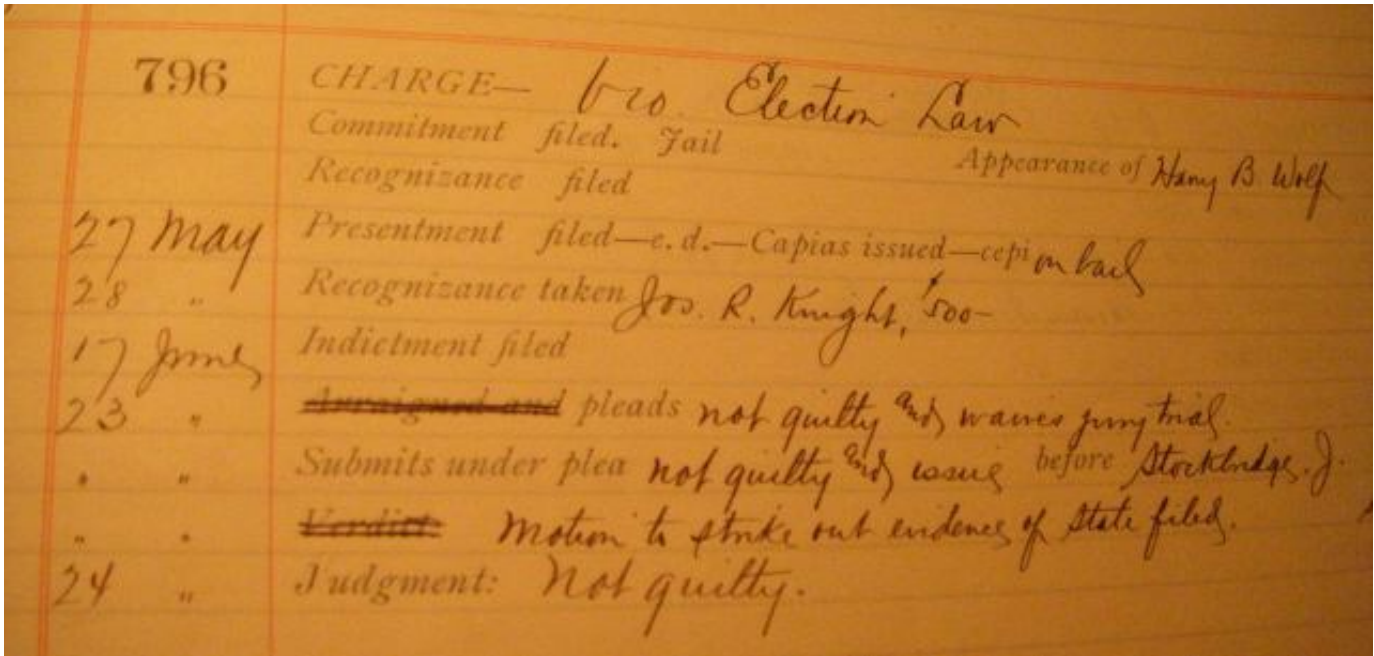 796 CHARGE— vio. Election Law
Commitment filed. Jail Appearance of Harry B Wolf
Recognizance filed
27 May Presentment filed—c.d.—Capias issued—cepi on bail
28 " Recognizance taken Jos. R. Knight, $500-
17 June Indictment filed
23 " Arraigned and pleads not guilty and waives jury trial.
" " Submits under plea not guilty and issue before Stockbridge. J.
" " Verdict Motion to strike out evidence of State filed.
24 " Judgment: Not guilty.